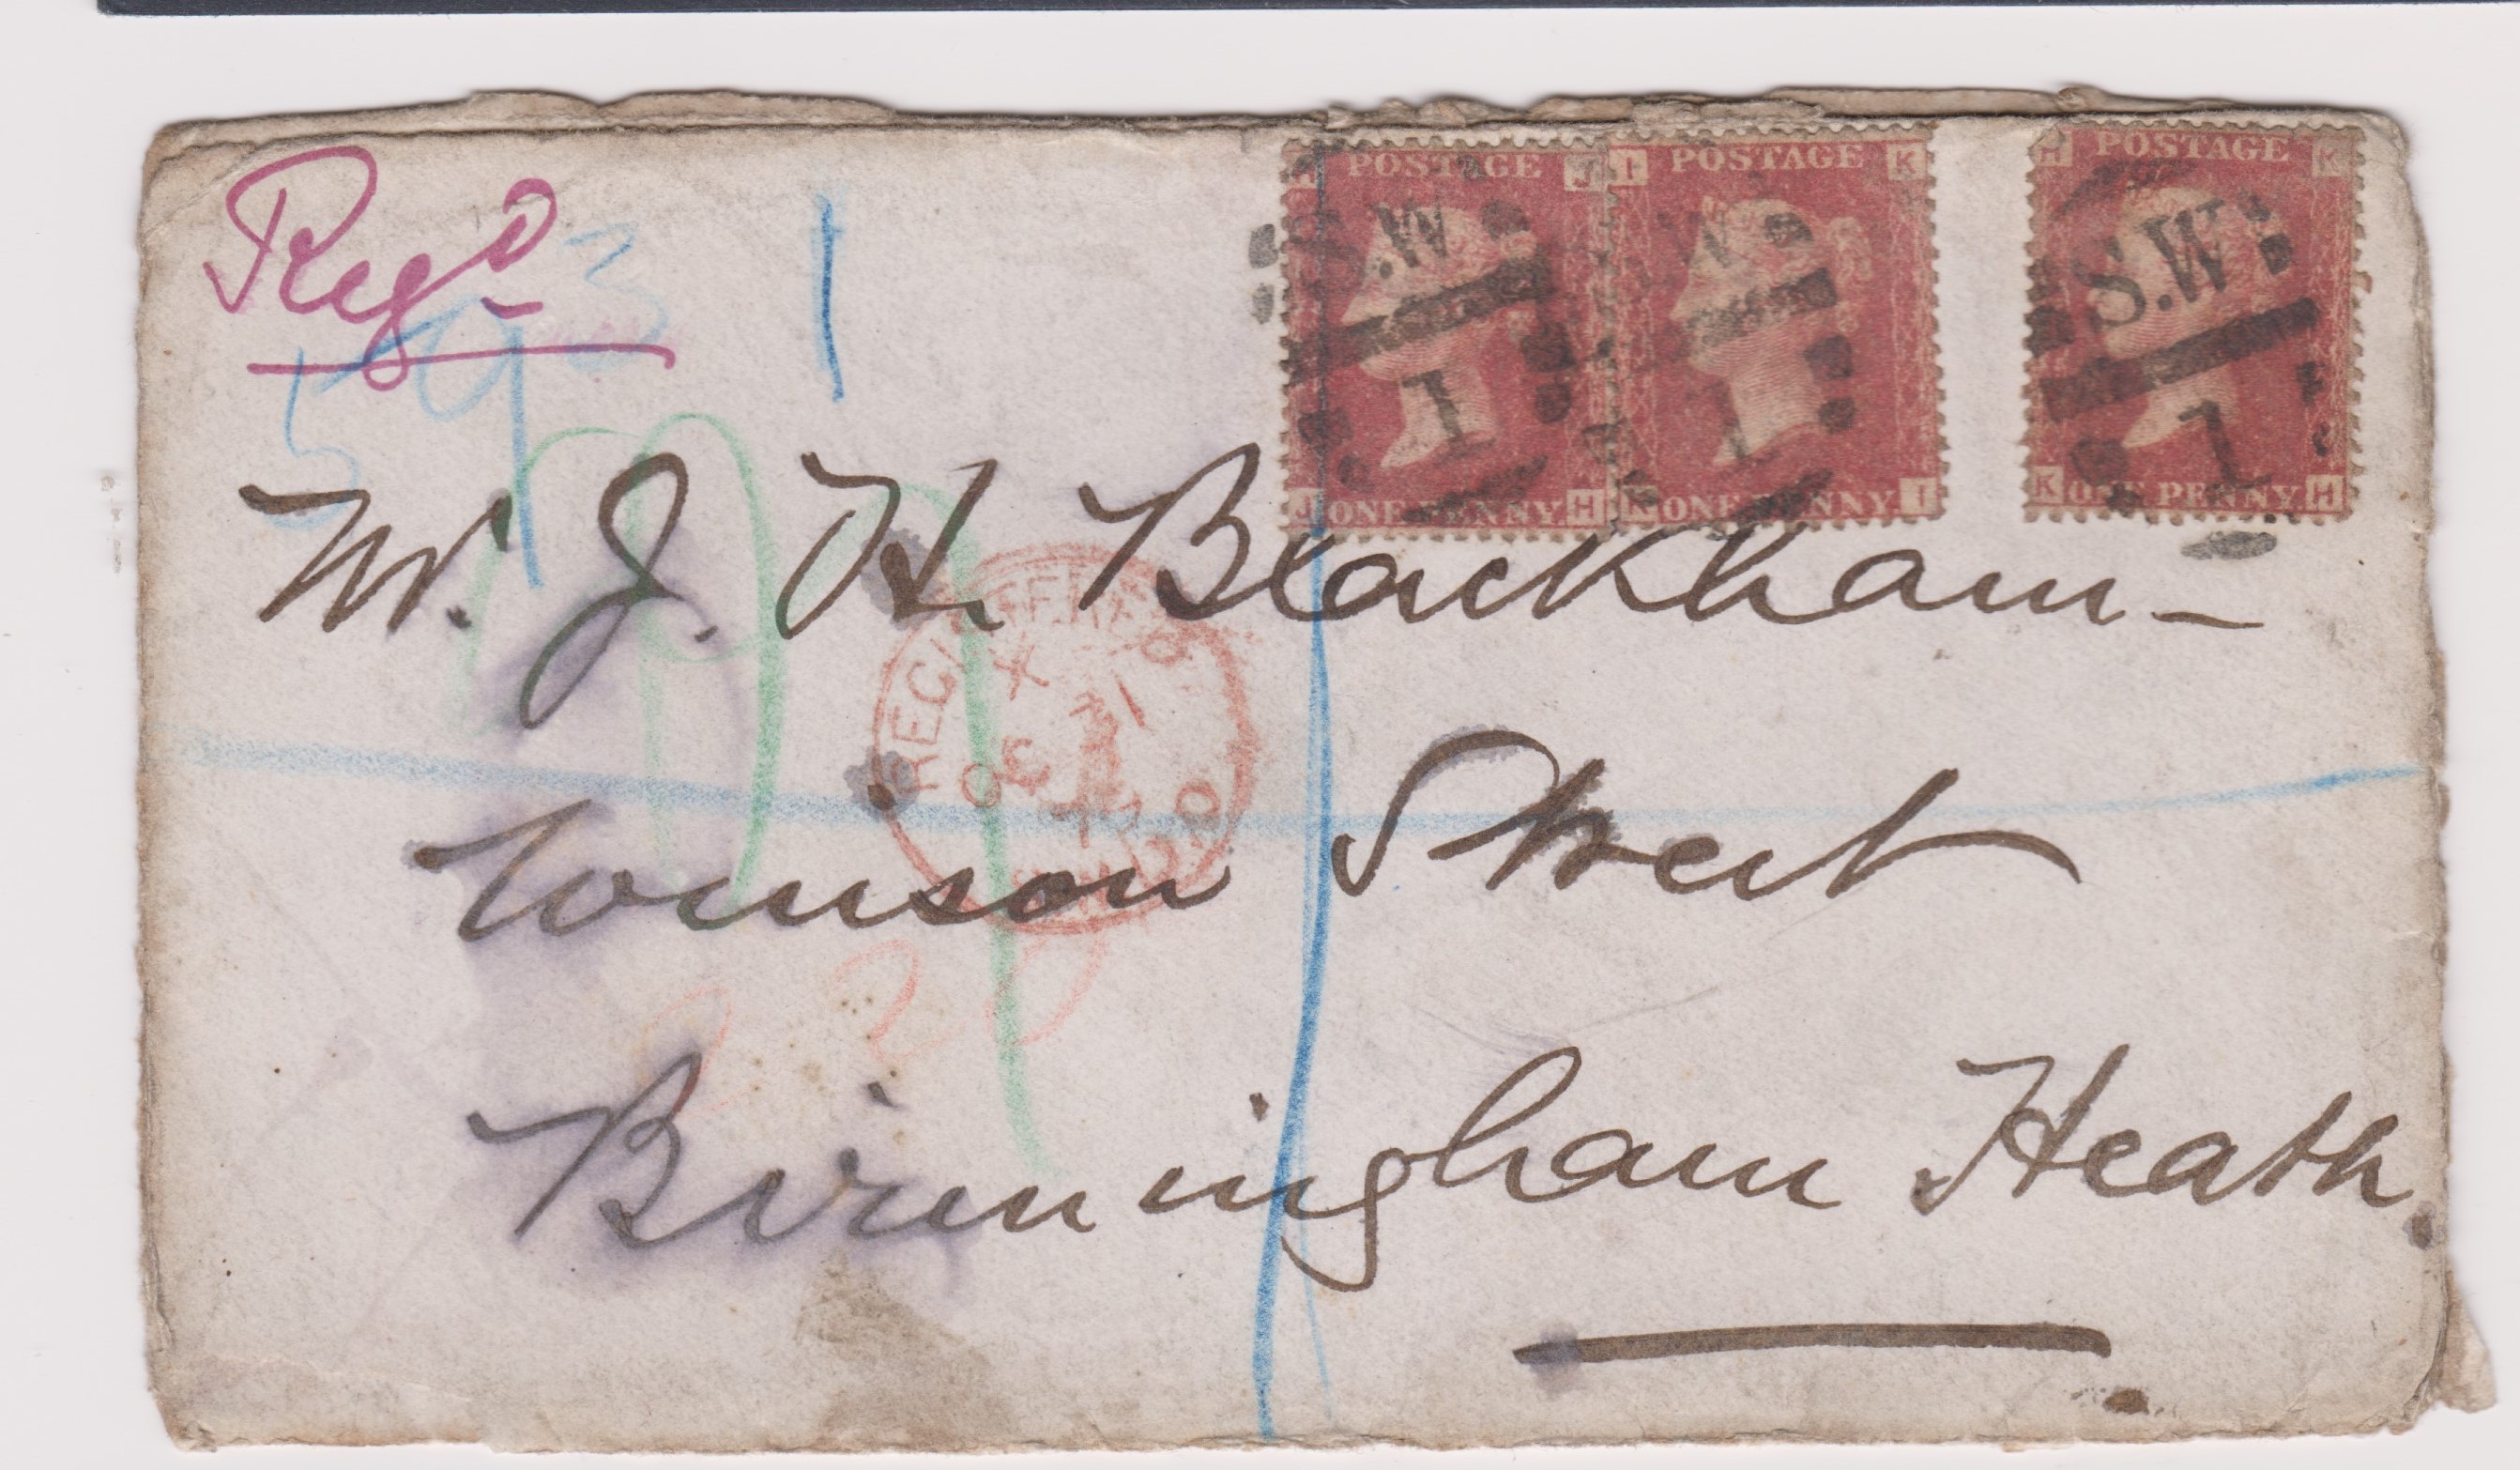 Regd
593
1
POSTAGE J
S.W
1
J ONE PENNY H
I POSTAGE K
W
1
ONE PENNY I
H POSTAGE K
S.W
1
K ONE PENNY H
Mr. J. H. Blackham-
REGISTERED
X
31
OC
7
LONDON
Tomson Street
Birmingham Heath.